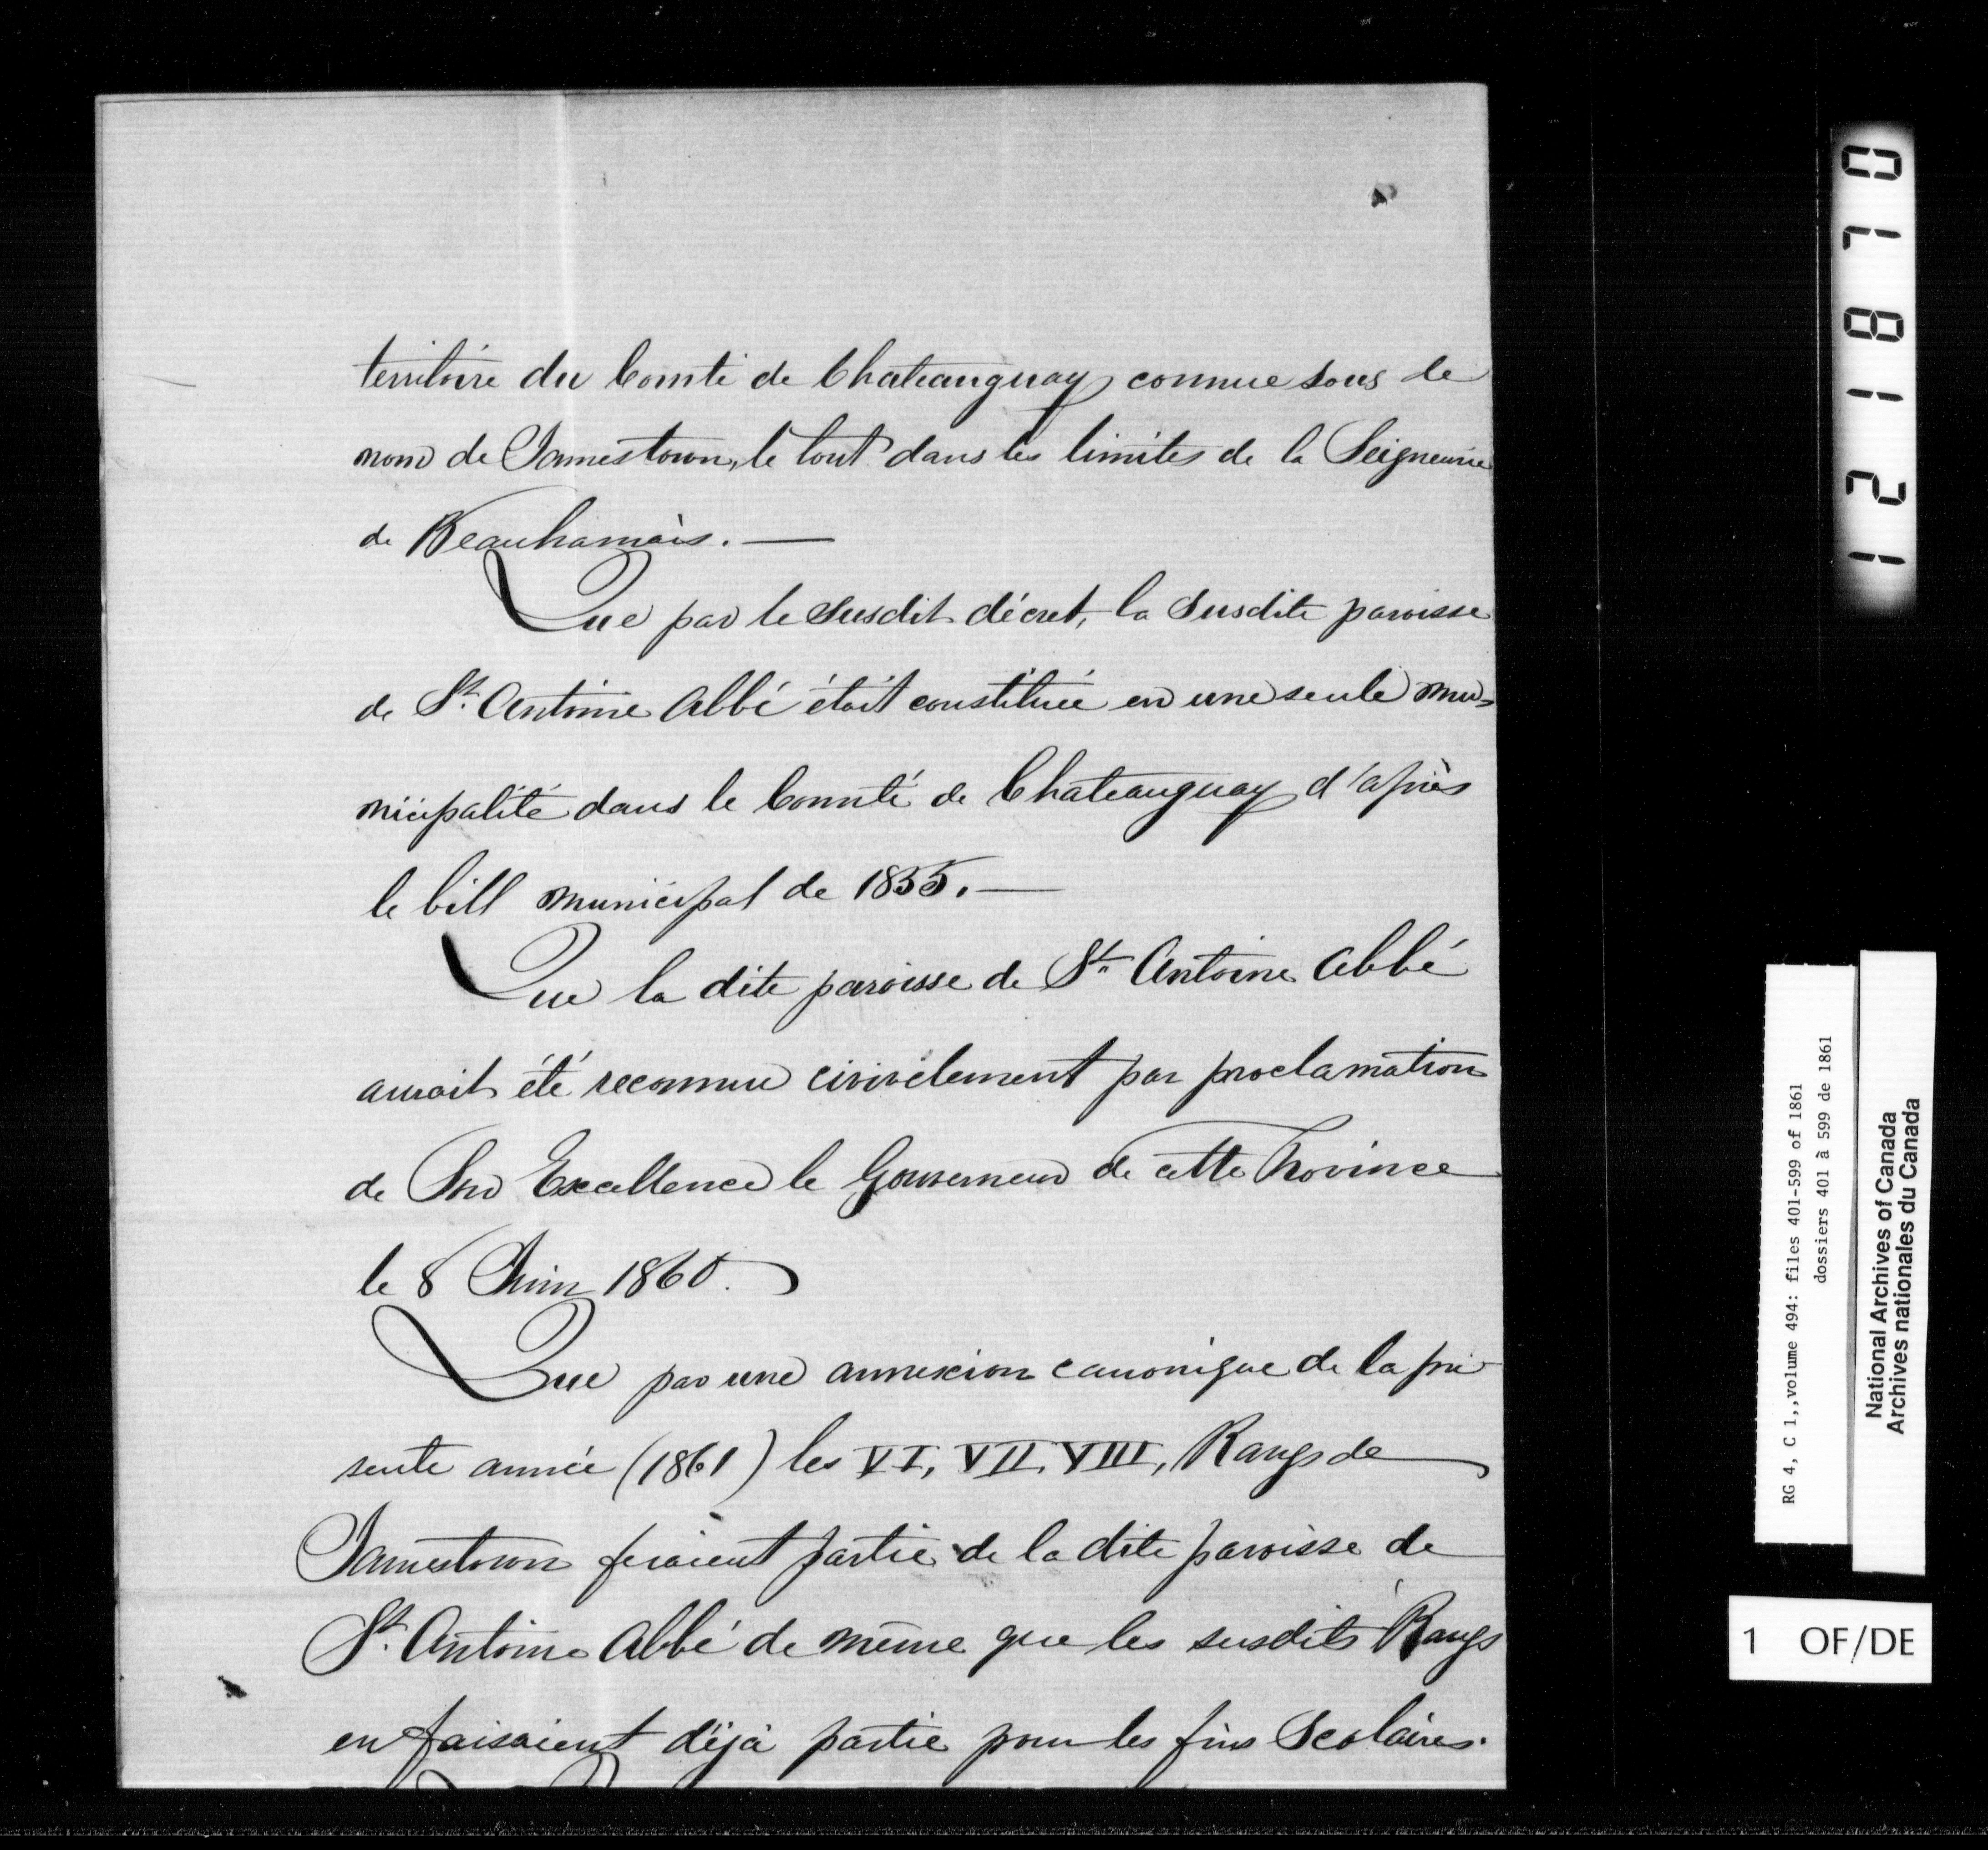 territoire du Comté de Chateauguay connue sous le
nom de Jamestown, le tout dans les limites de la Seigneurie
de Beauharnais. —
Que par le susdit décret, la susdite paroisse
de St. Antoine Abbé était constituée en une seule mu-
nicipalité dans le Comté de Chateauguay d'après
le bill municipal de 1855. —
Que la dite paroisse de St. Antoine Abbé
aurait été reconnue civivilement par proclamation
de Son Excellence le Gouverneur de cette Province
le 8 Juin 1860.
Que par une annexion canonique de la pré-
sente année (1861) les VI, VII, VIII, Rangs de
Jamestown feraient partie de la dite paroisse de
St. Antoine Abbé de même que les susdits Rangs
en faisaient déjà partie pour les fins Scolaires.
121810
RG 4, C 1,,volume 494: files 401-599 of 1861
dossiers 401 à 599 de 1861
National Archives of Canada
Archives nationales du Canada
1 OF/DE